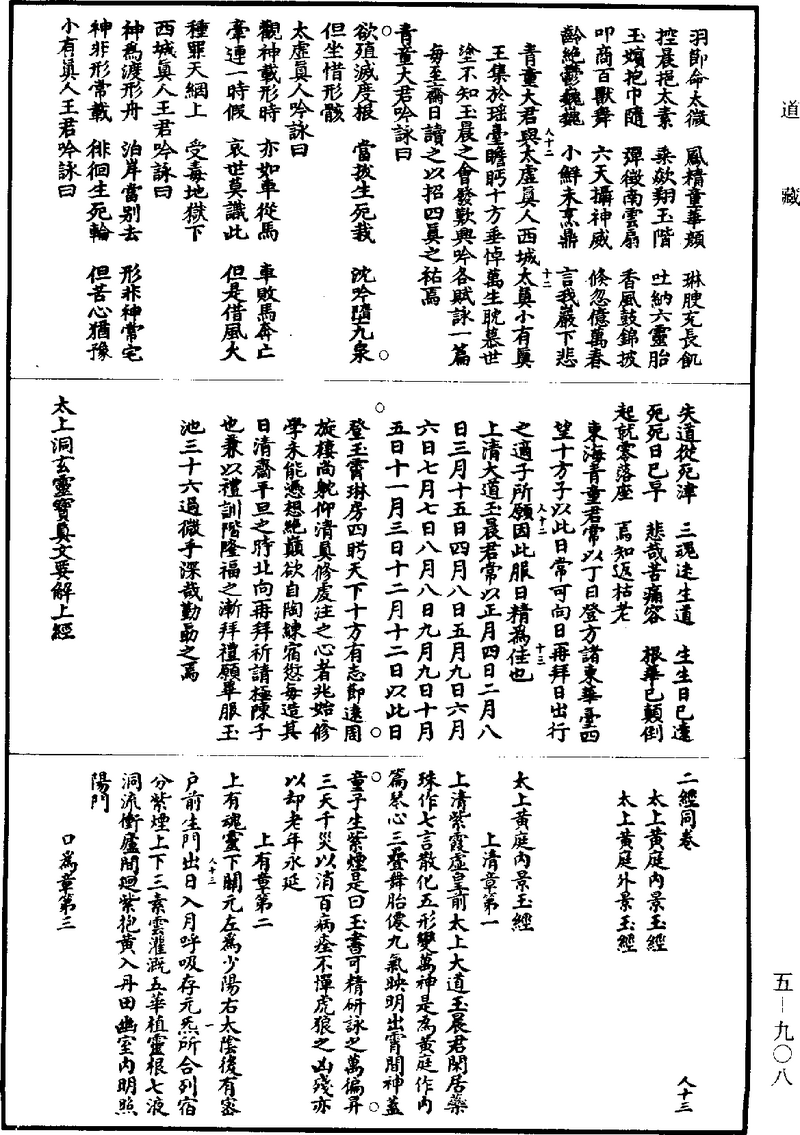 道藏
羽節命太微　鳳精童華顏　琳腴充長飢
控晨挹太素　乘欻翔玉階　吐納六靈胎
玉嬪抱巾隨　彈徵南雲扇　香風鼓錦披
叩商百獸舞　六天攝神威　倏忽億萬春
齡絕鬱巍巍　小鮮未烹鼎　言我巖下悲
青童大君與太虛真人西城太真小有真
王集於瑶臺瞻眄十方垂悼萬生耽慕世
塗不知玉晨之會發歎興吟各賦詠一篇
每至齋日讀之以招四真之祐焉
青童大君吟詠曰
欲殖滅度根　當拔生死栽　沈吟墮九泉
但坐惜形骸
太虛真人吟詠曰
觀神載形時　亦如車從馬　車敗馬奔亡
牽連一時假　哀世莫識此　但是借風火
種罪天網上　受毒地獄下
西城真人王君吟詠曰
神為渡形舟　泊岸當別去　形非神常宅
神非形常載　徘徊生死輪　但苦心猶豫
小有真人王君吟詠曰
失道從死津　三魂迷生道　生生日已遠
死死日已早　悲哉苦痛容　根華已顛倒
起就零落座　焉知返枯老
東海青童君常以丁日登方諸東華臺四
望十方子以此日常可向日再拜日出行
之適子所願因此服日精為佳也
上清大道玉晨君常以正月四日二月八
日三月十五日四月八日五月九日六月
六日七月七日八月八日九月九日十月
五日十一月三日十二月十二日以此日
登玉霄琳房四眄天下十方有志節遠周
旋棲尚躭仰清真修虔注之心者兆始修
學未能憑想絕巔欲自陶練宿愆每造其
日清齋平旦之時北向再拜祈請極陳子
也兼以禮訓階隆福之漸拜禮願畢服玉
池三十六過微乎深哉勤勗之焉
太上洞玄靈寶真文要解上經
二經同卷
太上黃庭內景玉經
太上黃庭外景玉經
人十三
太上黃庭內景玉經
上清章第一
上清紫霞虛皇前太上大道玉晨君閑居蘂
珠作七言散化五形變萬神是為黃庭作內
篇琴心三疊舞胎僊九氣映明出霄間神蓋
童子生紫煙是曰玉書可精研詠之萬徧昇
三天千災以消百病痊不憚虎狼之凶殘亦
以却老年永延
上有章第二
上有魂靈下關元左為少陽右太陰後有密
戶前生門出日入月呼吸存元炁所合列宿
分紫煙上下三素雲灌溉五華植靈根七液
洞流衝廬間迴紫抱黃入丹田幽室內明照
陽門
口為章第三
五－九〇八